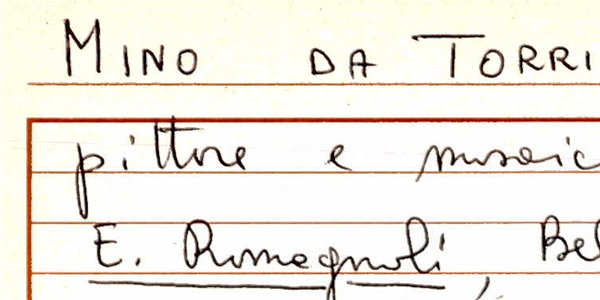 MINO DA TORRI
pittore e mosaic
E. Romagnoli, Bel